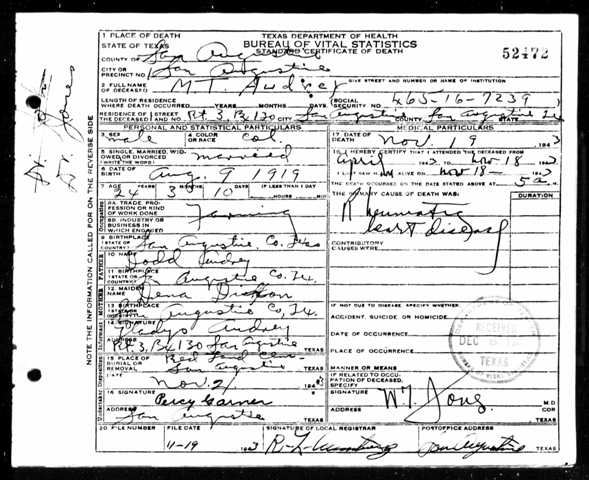 1 PLACE OF DEATH
STATE OF TEXAS
TEXAS DEPARTMENT OF HEALTH
BUREAU OF VITAL STATISTICS
STANDARD CERTIFICATE OF DEATH
52472
COUNTY OF San Augustine
CITY OR
PRECINCT NO. San Augustine
GIVE STREET AND NUMBER OR NAME OF INSTITUTION
2 FULL NAME
OF DECEASED M.T. Audrey
LENGTH OF RESIDENCE
WHERE DEATH OCCURRED YEARS MONTHS DAYS
SOCIAL
SECURITY NO. 465-16-7239
RESIDENCE OF THE DECEASED STREET Rt 3, Bx 130 CITY San Augustine San Augustine STATE Tex
PERSONAL AND STATISTICAL PARTICULARS
3 SEX male
4 COLOR OR RACE col.
5 SINGLE, MARRIED, WIDOWED OR DIVORCED
(WRITE THE WORD) married
6 DATE OF BIRTH Aug. 9 1919
7 AGE YEARS MONTHS DAYS IF LESS THAN 1 DAY
24 3 10 HOURS MIN
8A TRADE, PROFESSION OR KIND OF WORK DONE Farming
8B INDUSTRY OR BUSINESS IN WHICH ENGAGED
9 BIRTHPLACE
(STATE OR COUNTRY) San Augustine Co. Tex
10 NAME Todd Audrey
11 BIRTHPLACE
(STATE OR COUNTRY) San Augustine Co. Tex.
12 MAIDEN NAME
13 BIRTHPLACE
(STATE OR COUNTRY) San Augustine Co. Tex.
14 SIGNATURE Gladys Audrey
ADDRESS Rt 3, Bx 130 San Augustine TEXAS
15 PLACE OF BURIAL OR REMOVAL
San Augustine TEXAS
DATE Nov. 21 1943
16 SIGNATURE Percy Garner
ADDRESS San Augustine TEXAS
MEDICAL PARTICULARS
17 DATE OF DEATH Nov. 19 1943
18 I HEREBY CERTIFY THAT I ATTENDED THE DECEASED FROM
April 1943 TO Nov 18 1943
I LAST SAW H ALIVE ON Nov 18 1943
THE DEATH OCCURRED ON THE DATE STATED ABOVE AT 5 a M
THE PRIMARY CAUSE OF DEATH WAS: DURATION
Rheumatic
heart disease
CONTRIBUTORY
CAUSES WERE:
IF NOT DUE TO DISEASE SPECIFY WHETHER:
ACCIDENT, SUICIDE OR HOMICIDE
DATE OF OCCURRENCE
PLACE OF OCCURRENCE
MANNER OR MEANS
IF RELATED TO OCCUPATION OF DECEASED, SPECIFY
RECEIVED
DEC
TEXAS
SIGNATURE M.D.
ADDRESS COR
TEXAS
20 FILE NUMBER FILE DATE SIGNATURE OF LOCAL REGISTRAR POSTOFFICE ADDRESS
11-19 1943 San Augustine TEXAS
NOTE THE INFORMATION CALLED FOR ON THE REVERSE SIDE
Dr. Jones